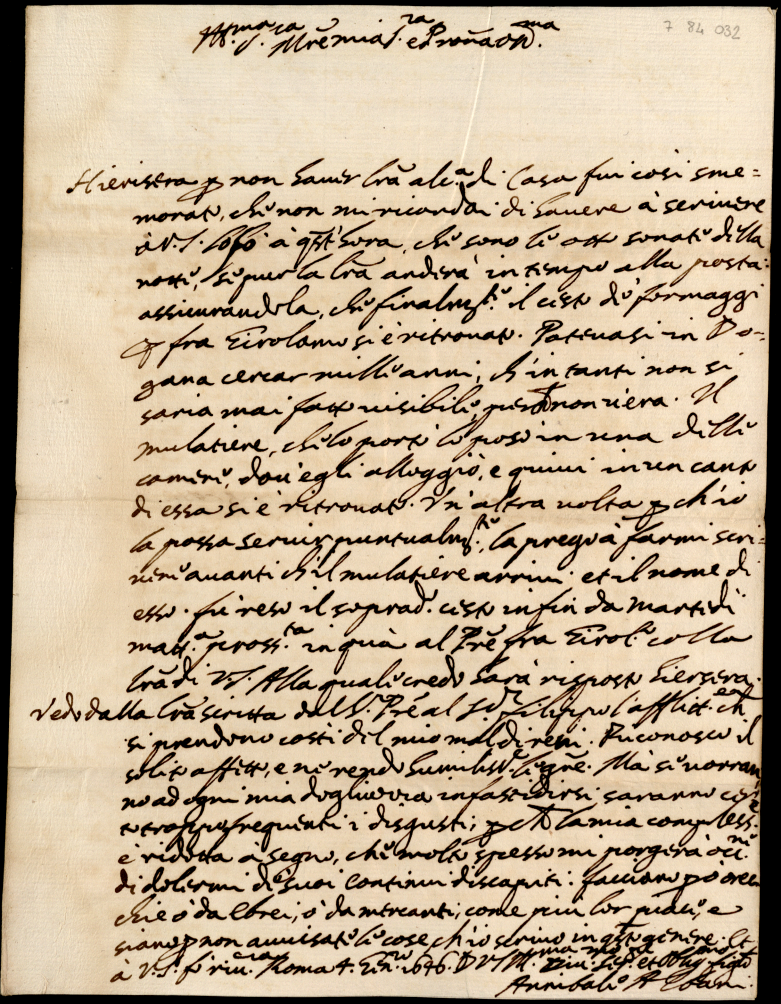 7 84 032
Ill.ma S.ra M're mia S.ra et P'rona Oss.ma
Hierisera p non haver l'ra alc.a di Casa fui così sme=
morato, che non mi ricordai di havere à scrivere
à V.S. Lofò à q'st'hora, che sono le otto sonate della
notte, se pur la l'ra anderà in tempo alla posta:
assicurandola, che finalm.te il cesto de' formaggi
p fra Girolamo si è ritrovato. Potevasi in Do=
gana cercar mill'anni, ch'in tanti non si
saria mai fatto visibile, perche non v'era. Il
mulatiere, che lo portò lo pose in una delle
camere, dov'egli alloggiò, e quivi in un canto
di essa si è ritrovato. Un'altra volta p ch'io
la possa servir puntualm.te, la prego à farmi scri=
vere avanti ch'il mulatiere arrivi et il nome di
esso. fù reso il soprad.o cesto infin da martedì
matt.a pross.ta in quà al P're fra Girol.o colla
l'ra di V.S. Alla quale credo harà risposto hiersera.
Vedo dalla l'ra scritta dal S.r P're al S.or Filippo l'afflitt.e ch
si prendono costì del mio mal di reni. Riconosco il
solito affetto, e ne rendo humiliss.e gr'e. Mà se vorran
no ad ogni mia doglierella infastidirsi saranno cer
to troppo frequenti i disgusti; p che la mia compless.e
è ridotta à segno, che molto spesso mi porgerà occ.ni
di dolermi de' suoi continui discapiti. facciano p ò orec
chie ò da Ebrei, ò da mercanti, come più lor piace, e
siano p non avvisate le cose ch'io scrivo in q'sto genere. Et
à V.S. fo riv.za Roma 4. Gen.ro 1646. D V.S. Ill.ma
Annibale Albani.